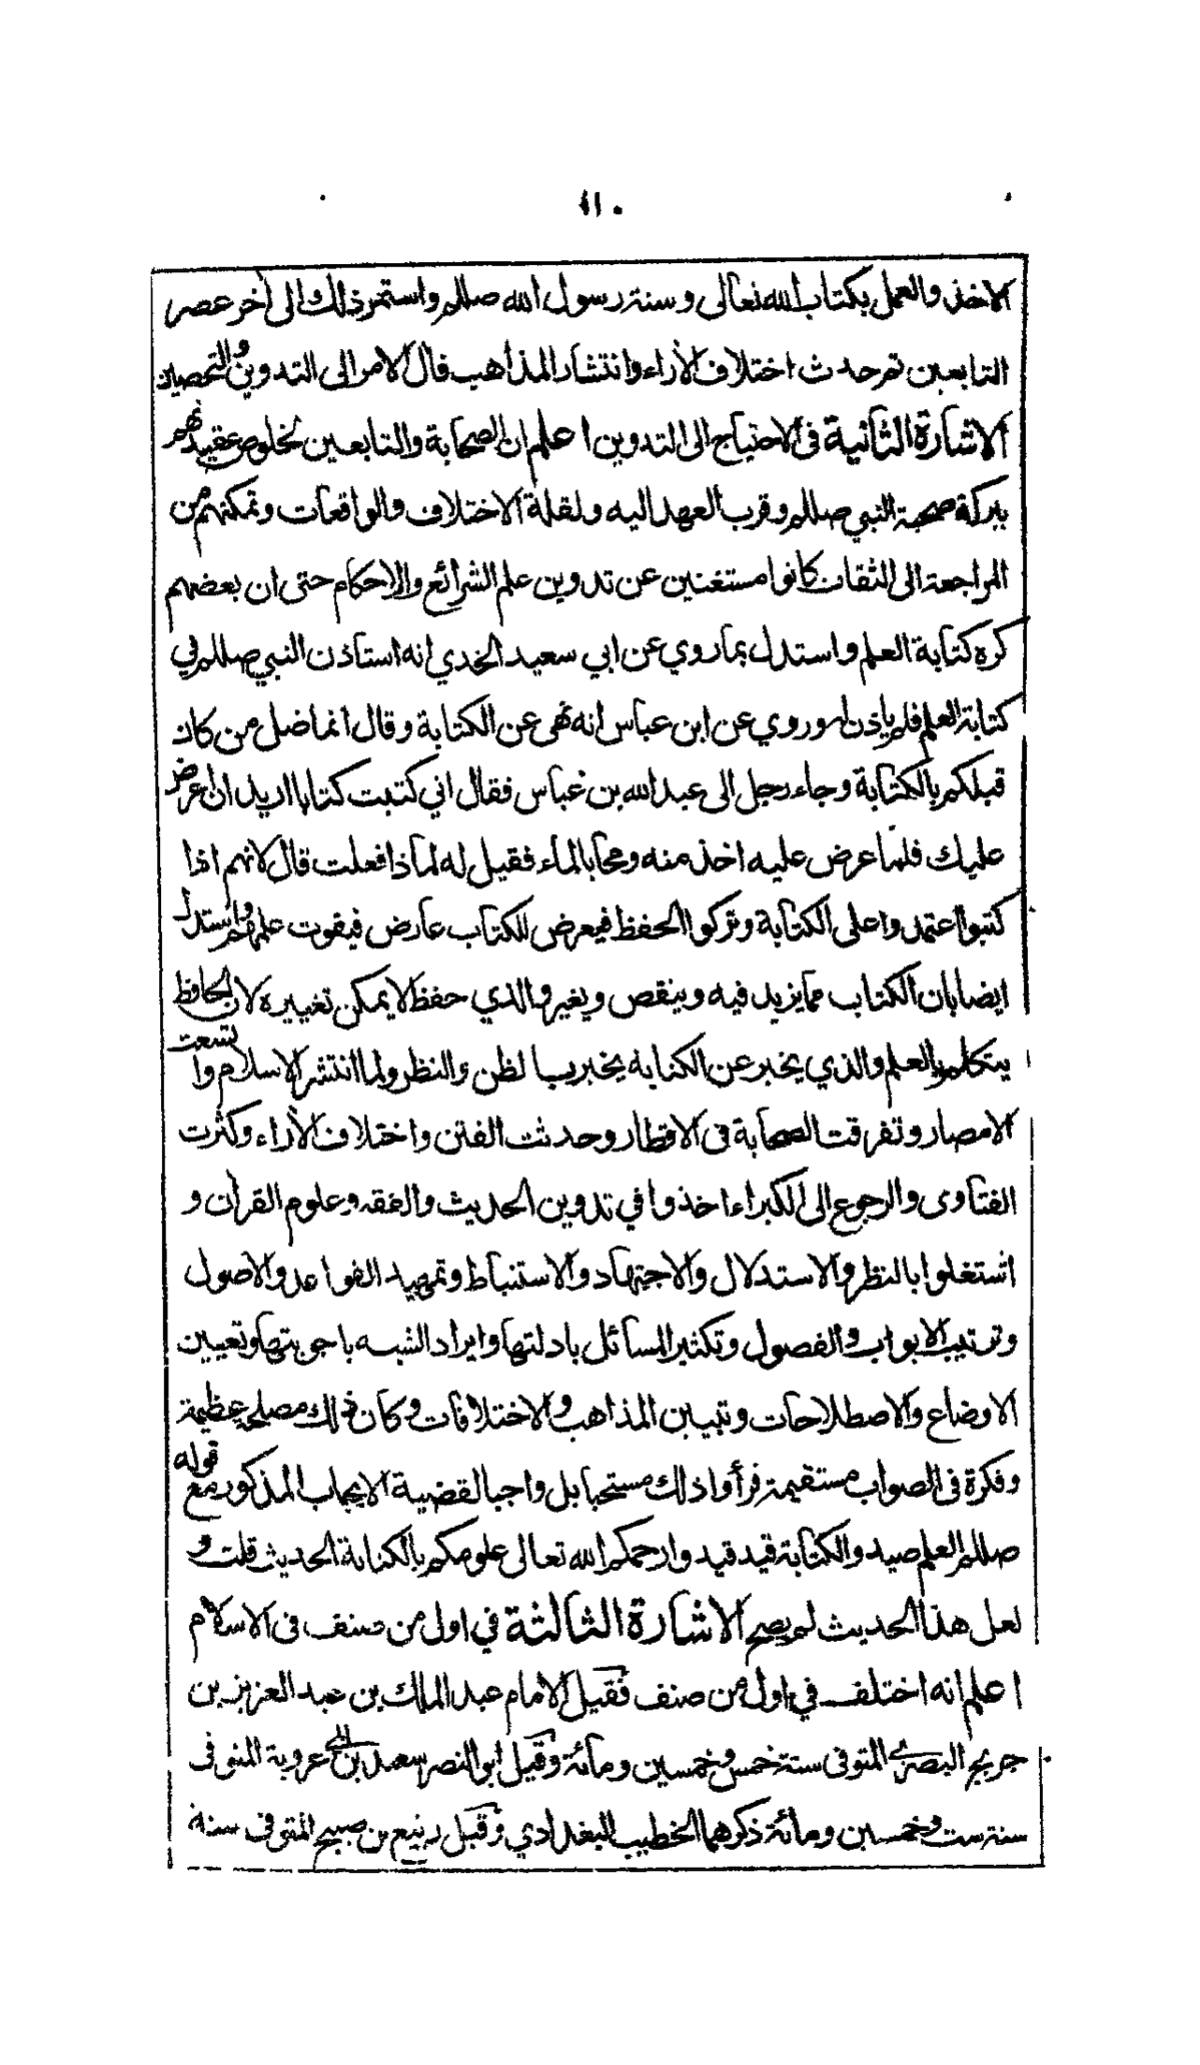 ١١٠
الاخذ والعمل بكتاب الله تعالى وسنة رسول الله صللم واستمر ذلك الى آخر عصر
التابعين ثم حدث اختلاف الآراء وانتشار المذاهب فآل الامر الى التدوين والتحصين
الاشارة الثانية في الاحتياج الى التدوين اعلم ان الصحابة والتابعين لخلوص عقيدتهم
ببركة صحبة النبي صللم وقرب العهد اليه ولقلة الاختلاف والواقعات وتمكنهم من
المراجعة الى الثقات كانوا مستغنين عن تدوين علم الشرائع والاحكام حتى ان بعضهم
كره كتابة العلم واستدل بما روي عن ابي سعيد الخدي انه استاذن النبي صللم في
كتابة العلم فلم ياذن له وروي عن ابن عباس انه نهى عن الكتابة وقال انما ضل من كان
قبلكم بالكتابة وجاء رجل الى عبد الله بن عباس فقال اني كتبت كتابا اريد ان اعرض
عليك فلما عرض عليه اخذ منه ومحا بالماء فقيل له لماذا فعلت قال لانهم اذا
كتبوا اعتمدوا على الكتابة وتركوا الحفظ فيعرض للكتاب عارض فيفوت علمهم واستدل
ايضا بان الكتاب مما يزيد فيه وينقص ويغير والذي حفظ لا يمكن تغييره لان الحافظ
يتكلم بالعلم والذي يخبر عن الكتابه يخبر بالظن والنظر ولما انتشر الاسلام واتسعت
الامصار وتفرقت الصحابة في الاقطار وحدثت الفتن واختلاف الآراء وكثرت
الفتاوى والرجوع الى الكبراء اخذوا في تدوين الحديث والفقه وعلوم القرآن و
اشتغلوا بالنظر والاستدلال والاجتهاد والاستنباط وتمهيد القواعد والاصول
وترتيب الابواب والفصول وتكثير المسائل بادلتها وايراد الشبه باجوبتها وتعيين
الاوضاع والاصطلاحات وتبيين المذاهب والاختلافات وكان ذلك مصلحة عظيمة
وفكرة في الصواب مستقيمة فرأوا ذلك مستحبا بل واجبا لقضية الايجاب المذكور مع قوله
صللم العلم صيد والكتابة قيد قيدوا رحمكم الله تعالى علومكم بالكتابة الحديث قلت و
لعل هذا الحديث لم يصح الاشارة الثالثة في اول من صنف في الاسلام
اعلم انه اختلف في اول من صنف فقيل الامام عبد الملك بن عبد العزيز بن
جريج البصري المتوفى سنة خمس وخمسين ومائة وقيل ابو النصر سعيد بن ابي عروبة المتوفى
سنة ست وخمسين ومائة ذكرهما الخطيب البغدادي وقيل ربيع بن صبيح المتوفى سنة